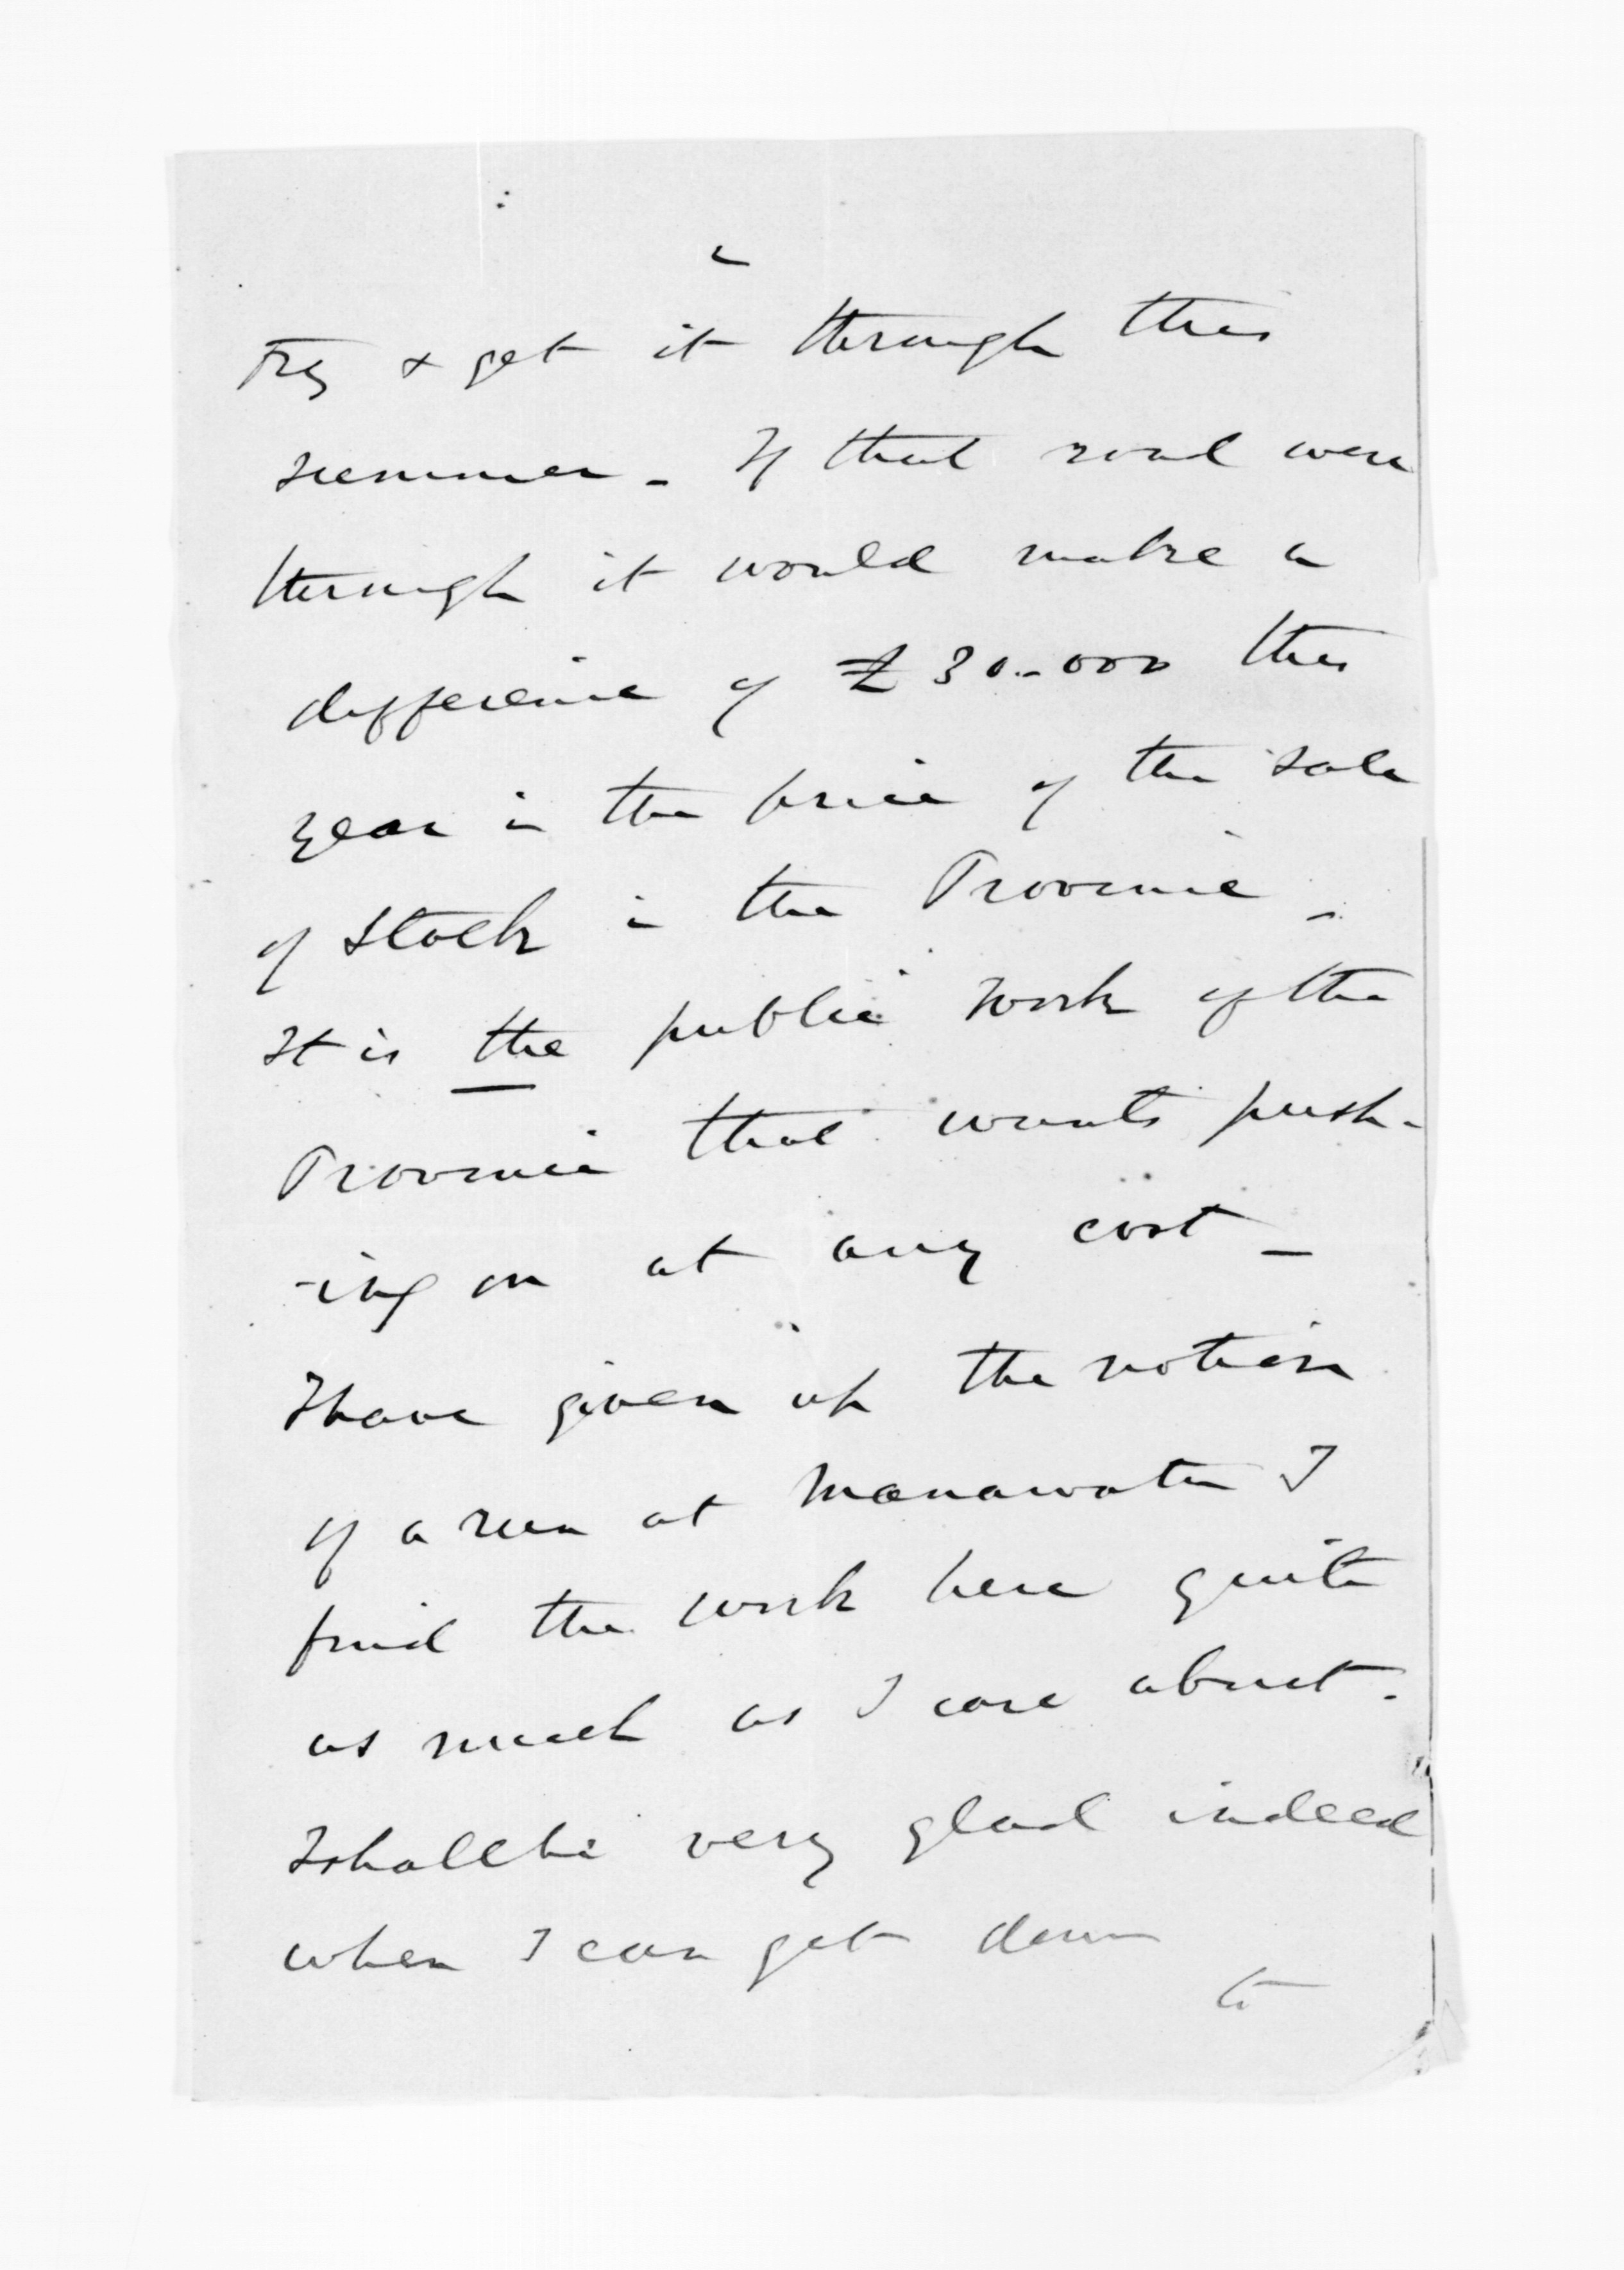 try & get it through this
summer - If that road were
through it would make a
difference of £30.000 this
year in the price of the sale
of stock in the Province -
It is the public work of the
Province that wants push-
-ing on at any cost -
I have given up the notion
of a run at Manawatu I
find the work here quite
as much as I care about.
I shall be very glad indeed
when I can get down
to